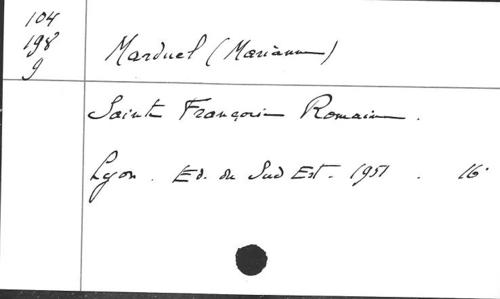 104
198
9
Marduel (Marianne)
Sainte Françoise Romaine.
Lyon. Ed. du Sud Est. 1951. 16°